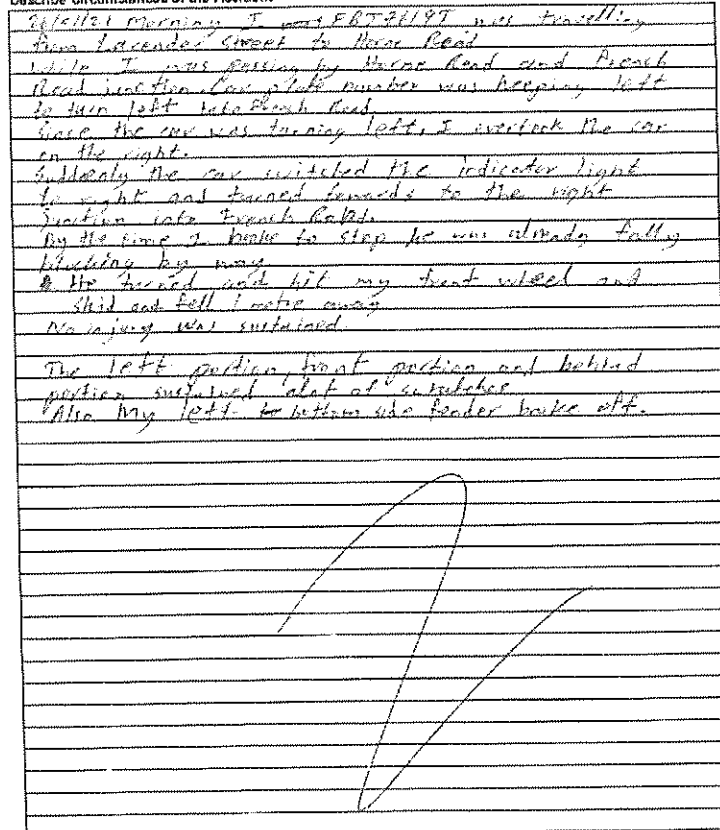 Describe Circumstances of the Accident
Morning I was FBT7619T was travelling
from Lavender Street to Horne Road
while I was passing by Horne Road and French
Road junction Car plate number was keeping left
to turn left into French Road
Since the car was turning left, I overtook the car
on the right.
Suddenly the car switched the indicator light
to right and turned towards to the right
Junction into French Road.
By the time I brake to stop he was already fully
blocking my way
He turned and hit my front wheel and
skid and fell 1 metre away
No injury was sustained
The left portion, front portion and behind
portion sustained alot of scratches
Also My left bottom side fender broke off.